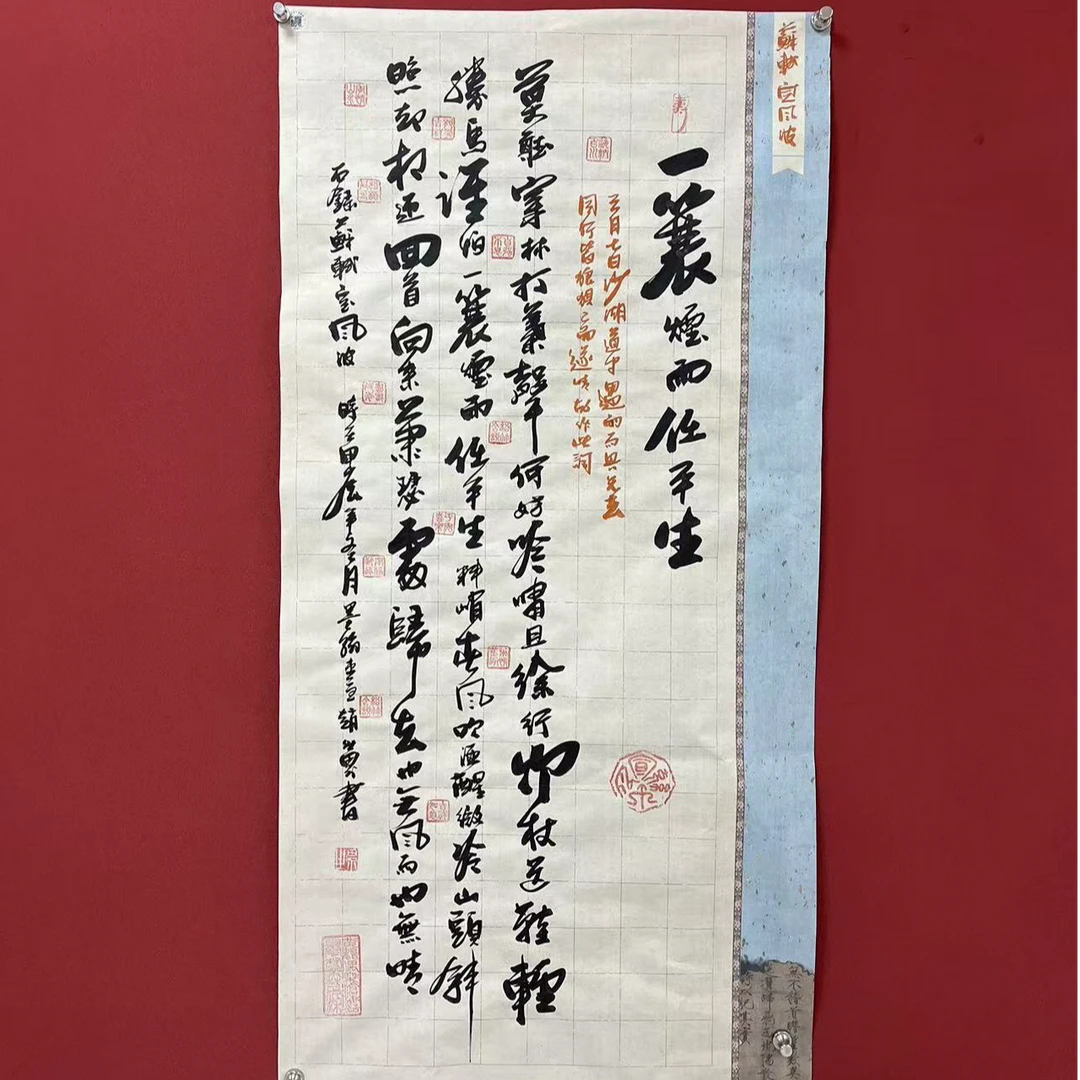 蘇軾定風波
一蓑煙雨任平生
三月七日沙湖道中遇雨雨具先去
同行皆狼狽已而遂晴故作此詞
莫聽穿林打葉聲何妨吟嘯且徐行竹杖芒鞋輕
勝馬誰怕一蓑煙雨任平生料峭春風吹酒醒微冷山頭斜
照却相迎回首向來蕭瑟處歸去也无風雨也無晴
右錄蘇軾定風波 時在甲辰年冬月